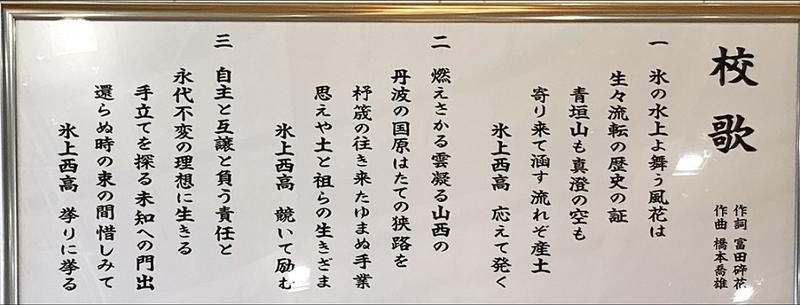 校歌
作詞 富田砕花
作曲 橋本喬雄
一 氷の水上よ舞う風花は
生々流転の歴史の証
青垣山も真澄の空も
寄り来て涵す 流れぞ産土
氷上西高 応えて発く
二 燃えさかる雲凝る山西の
丹波の国原はたての狭路を
杼筬の往き来たゆまぬ手業
思えや土と祖らの生きざま
氷上西高 競いて励む
三 自主と互譲と負う責任と
永代不変の理想に生きる
手立てを探る未知への門出
還らぬ時の束の間惜しみて
氷上西高 挙りに挙る